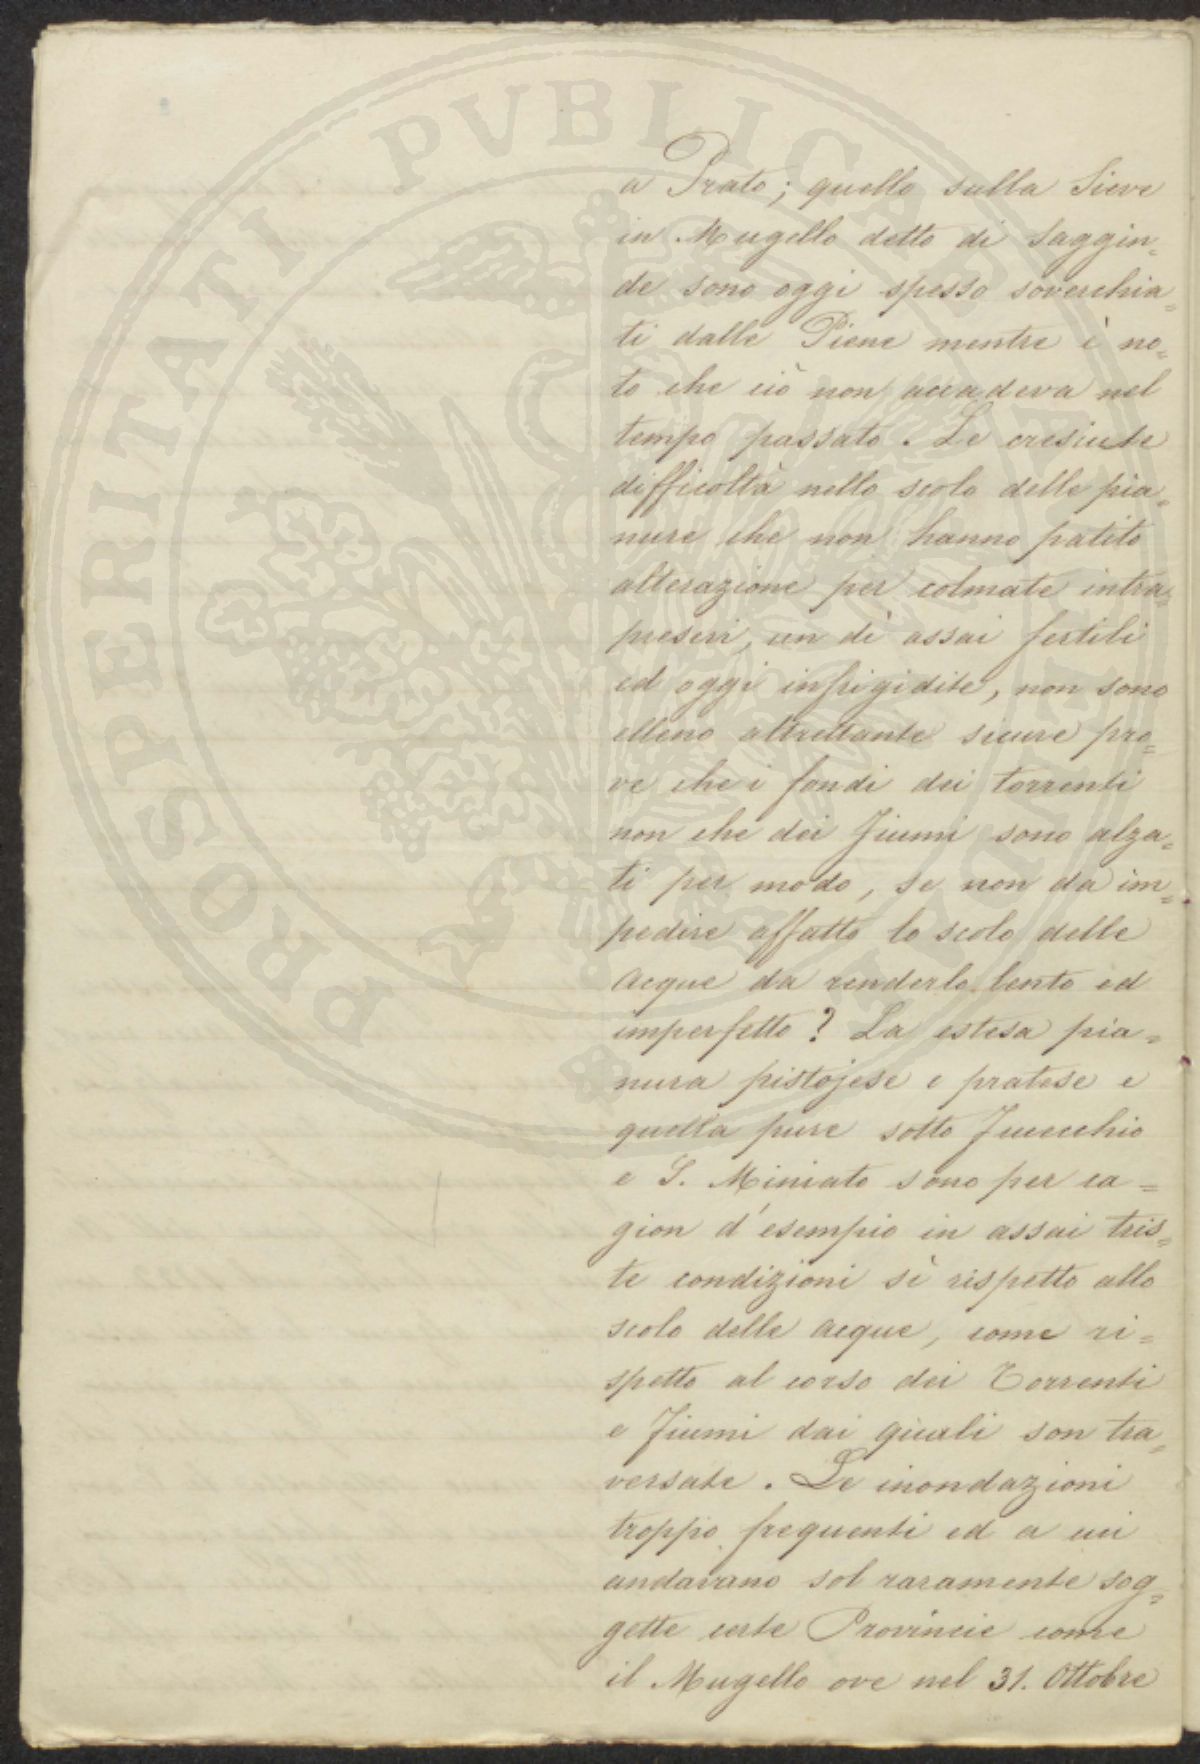 PROSPERITATI PVBLICAE
a Prato; quello sulla Sieve
in Mugello detto di Saggin=
de sono oggi spesso soverchia=
ti dalle Piene mentre è no=
to che ciò non accadeva nel
tempo passato. Le cresciute
difficoltà nello scolo delle pia=
nure che non hanno patito
alterazione per colmate intra=
presevi, un dì assai fertili
ed oggi infrigidite, non sono
elleno altrettante sicure pro=
ve che i fondi dei torrenti
non che dei Fiumi sono alza=
ti per modo, se non da im=
pedire affatto lo scolo delle
acque da renderlo lento ed
imperfetto? La estesa pia=
nura pistojese e pratese e
quella pure sotto Fucecchio
e S. Miniato sono per ca=
gion d'esempio in assai tris=
te condizioni sì rispetto allo
scolo delle acque, come ri=
spetto al corso dei Torrenti
e Fiumi dai quali son tra=
versate. Le inondazioni
troppo frequenti ed a cui
andavano sol raramente sog=
gette certe Provincie come
il Mugello ove nel 31. Ottobre